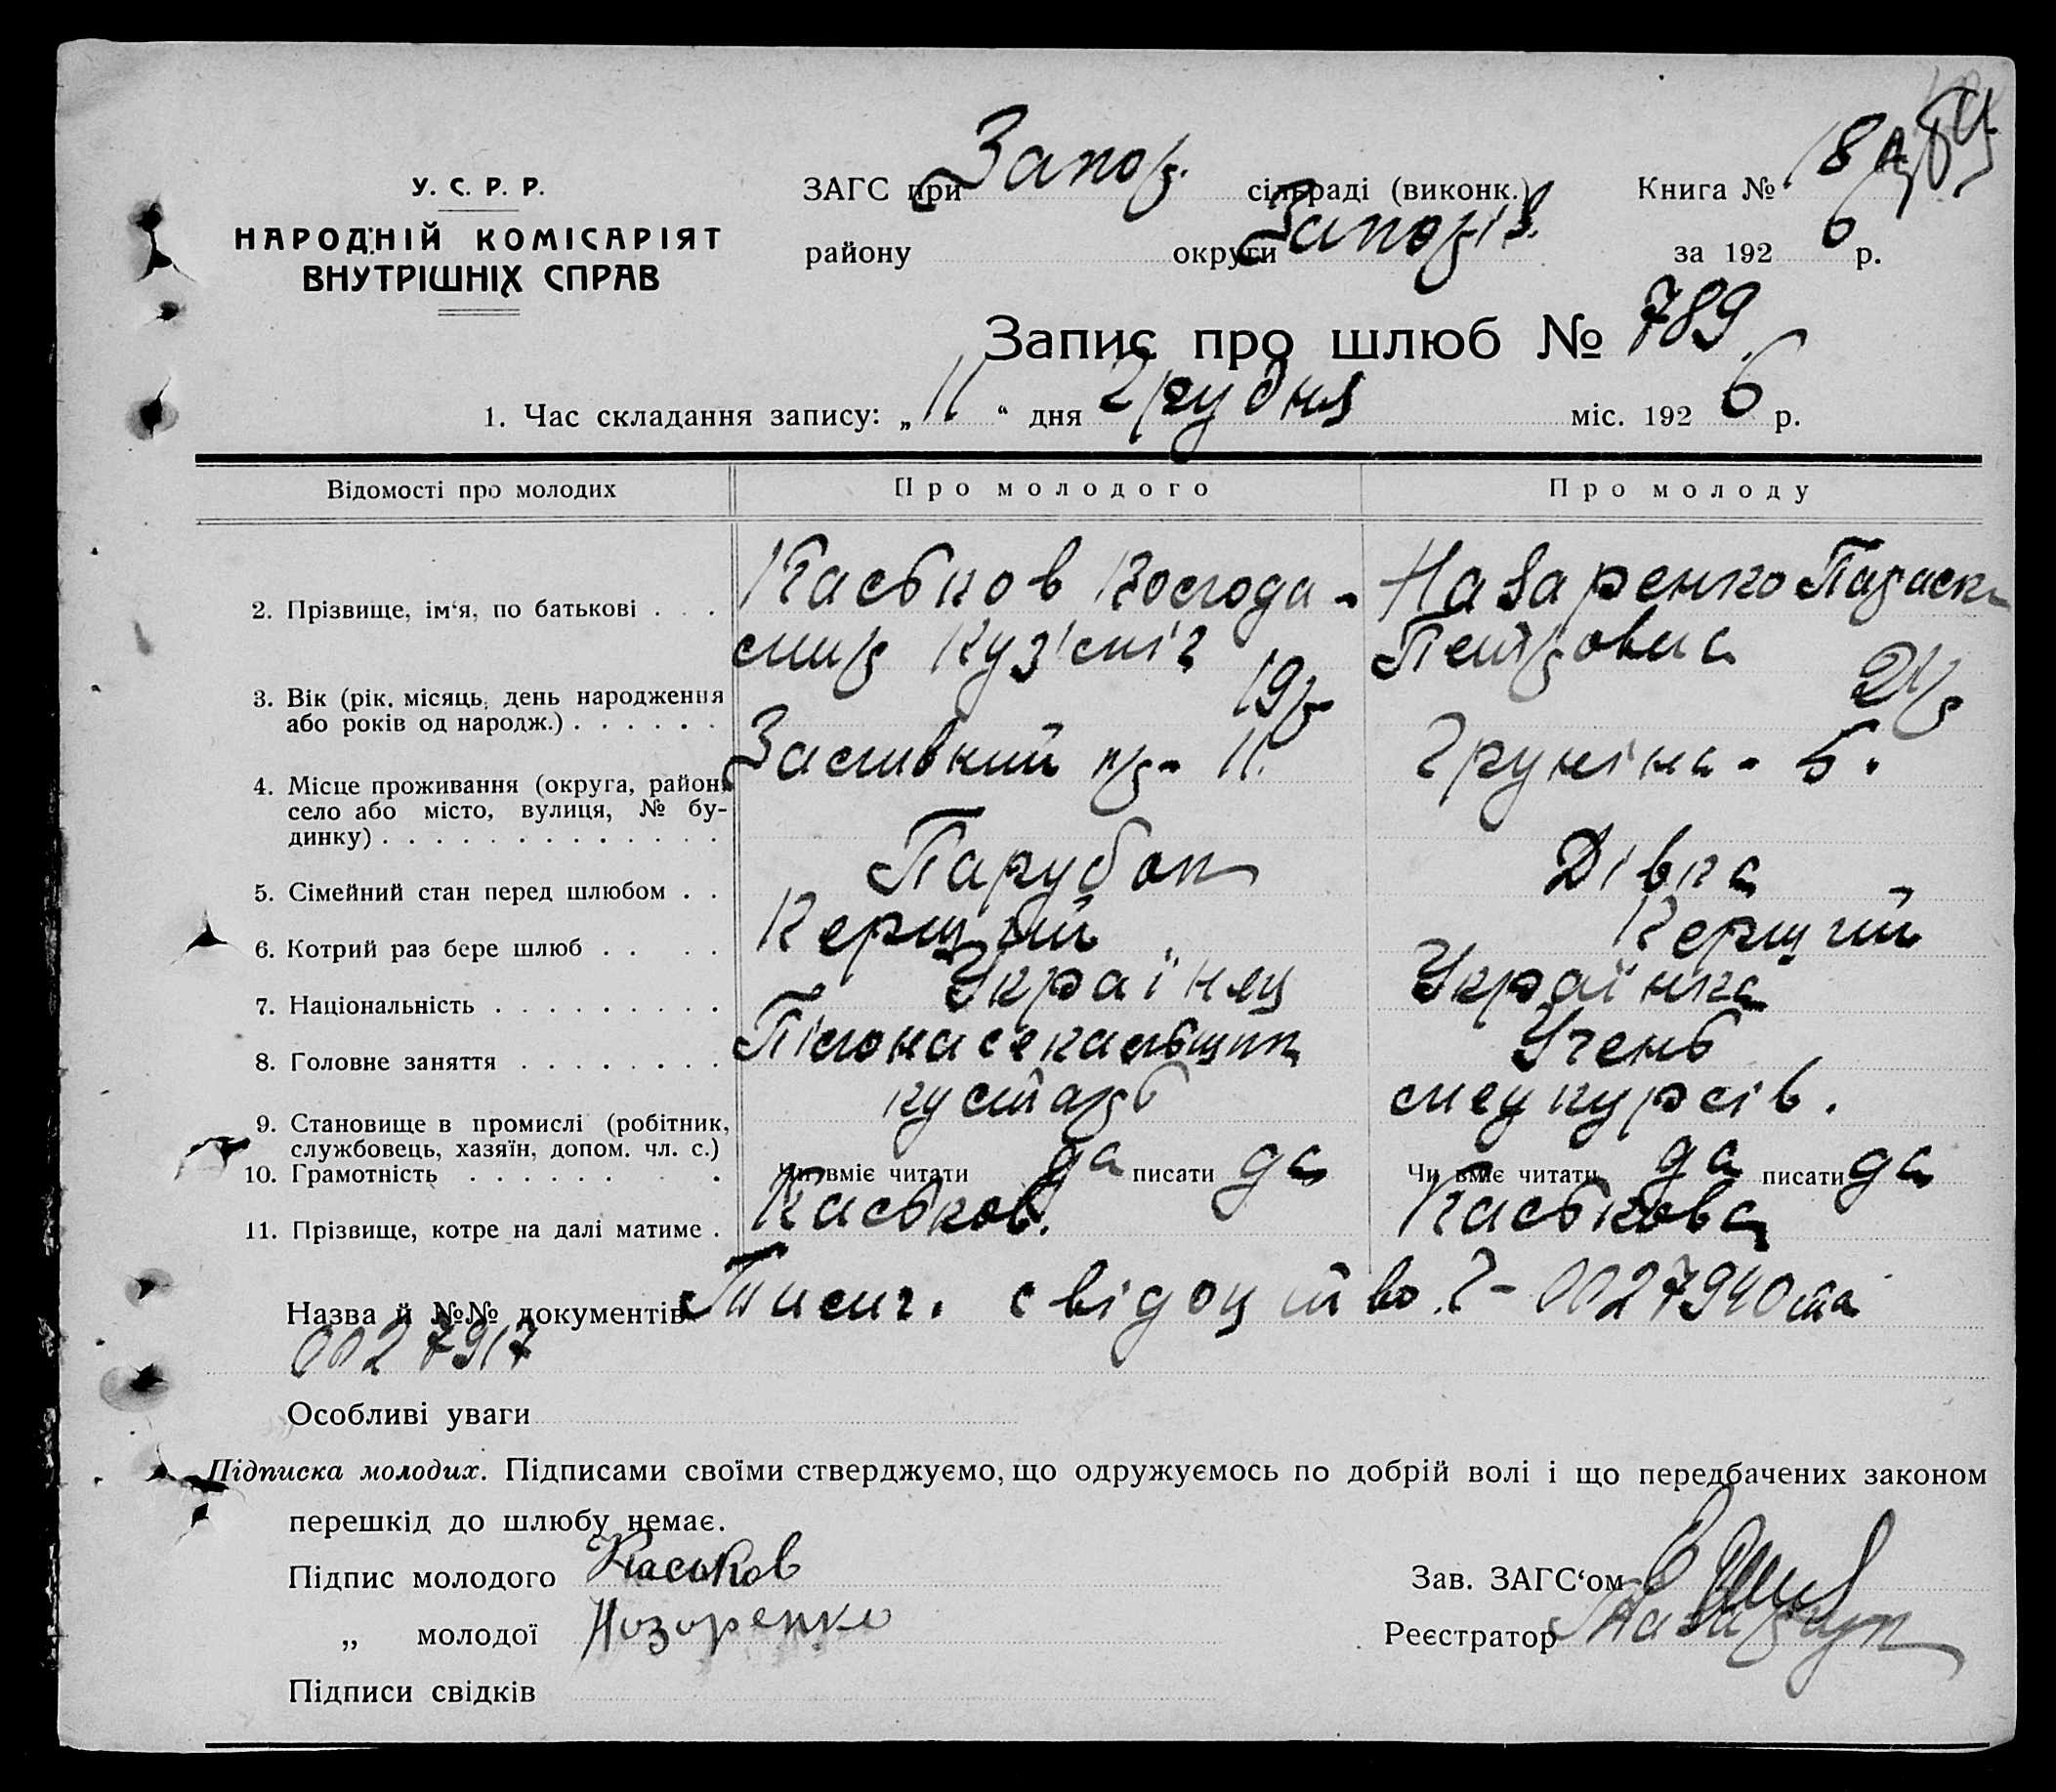 У. С. Р. Р.
НАРОДНІЙ КОМІСАРІЯТ
ВНУТРІШНІХ СПРАВ
ЗАГС при Запор. сільраді (виконк.) Книга № 18
району округи Запоріз. за 1926 р.
Запис про шлюб № 789.
1. Час складання запису: „11“ дня Грудня міс. 1926 р.
Відомості про молодих Про молодого Про молоду
2. Прізвище, ім‘я, по батькові . . . Каськов Назаренко Параск
Петровна
3. Вік (рік, місяць, день народження
або років од народж.) . . . . . . 19р 21р
4. Місце проживання (округа, район, 11. Груніна - 5.
село або місто, вулиця, № бу-
динку) . . . . . . . . . . . . .
5. Сімейний стан перед шлюбом . . Парубок Дівка
6. Котрий раз бере шлюб . . . . Перший Перший
7. Національність . . . . . . . . . Українец Українка
8. Головне заняття . . . . . . . . Учень
кустарь курсів.
9. Становище в промислі (робітник,
службовець, хазяїн, допом. чл. с.)
10. Грамотність . . . . . . . . Чи вміє читати да писати да Чи вміє читати да писати да
11. Прізвище, котре на далі матиме . Каськов. Каськова
Назва й №№ документів свідоцтво 0027940 та
0027917
Особливі уваги
Підписка молодих. Підписами своїми стверджуємо, що одружуємось по добрій волі і що передбачених законом
перешкід до шлюбу немає.
Підпис молодого Каськов
Зав. ЗАГС‘ом
„ молодої Назаренко
Реєстратор
Підписи свідків